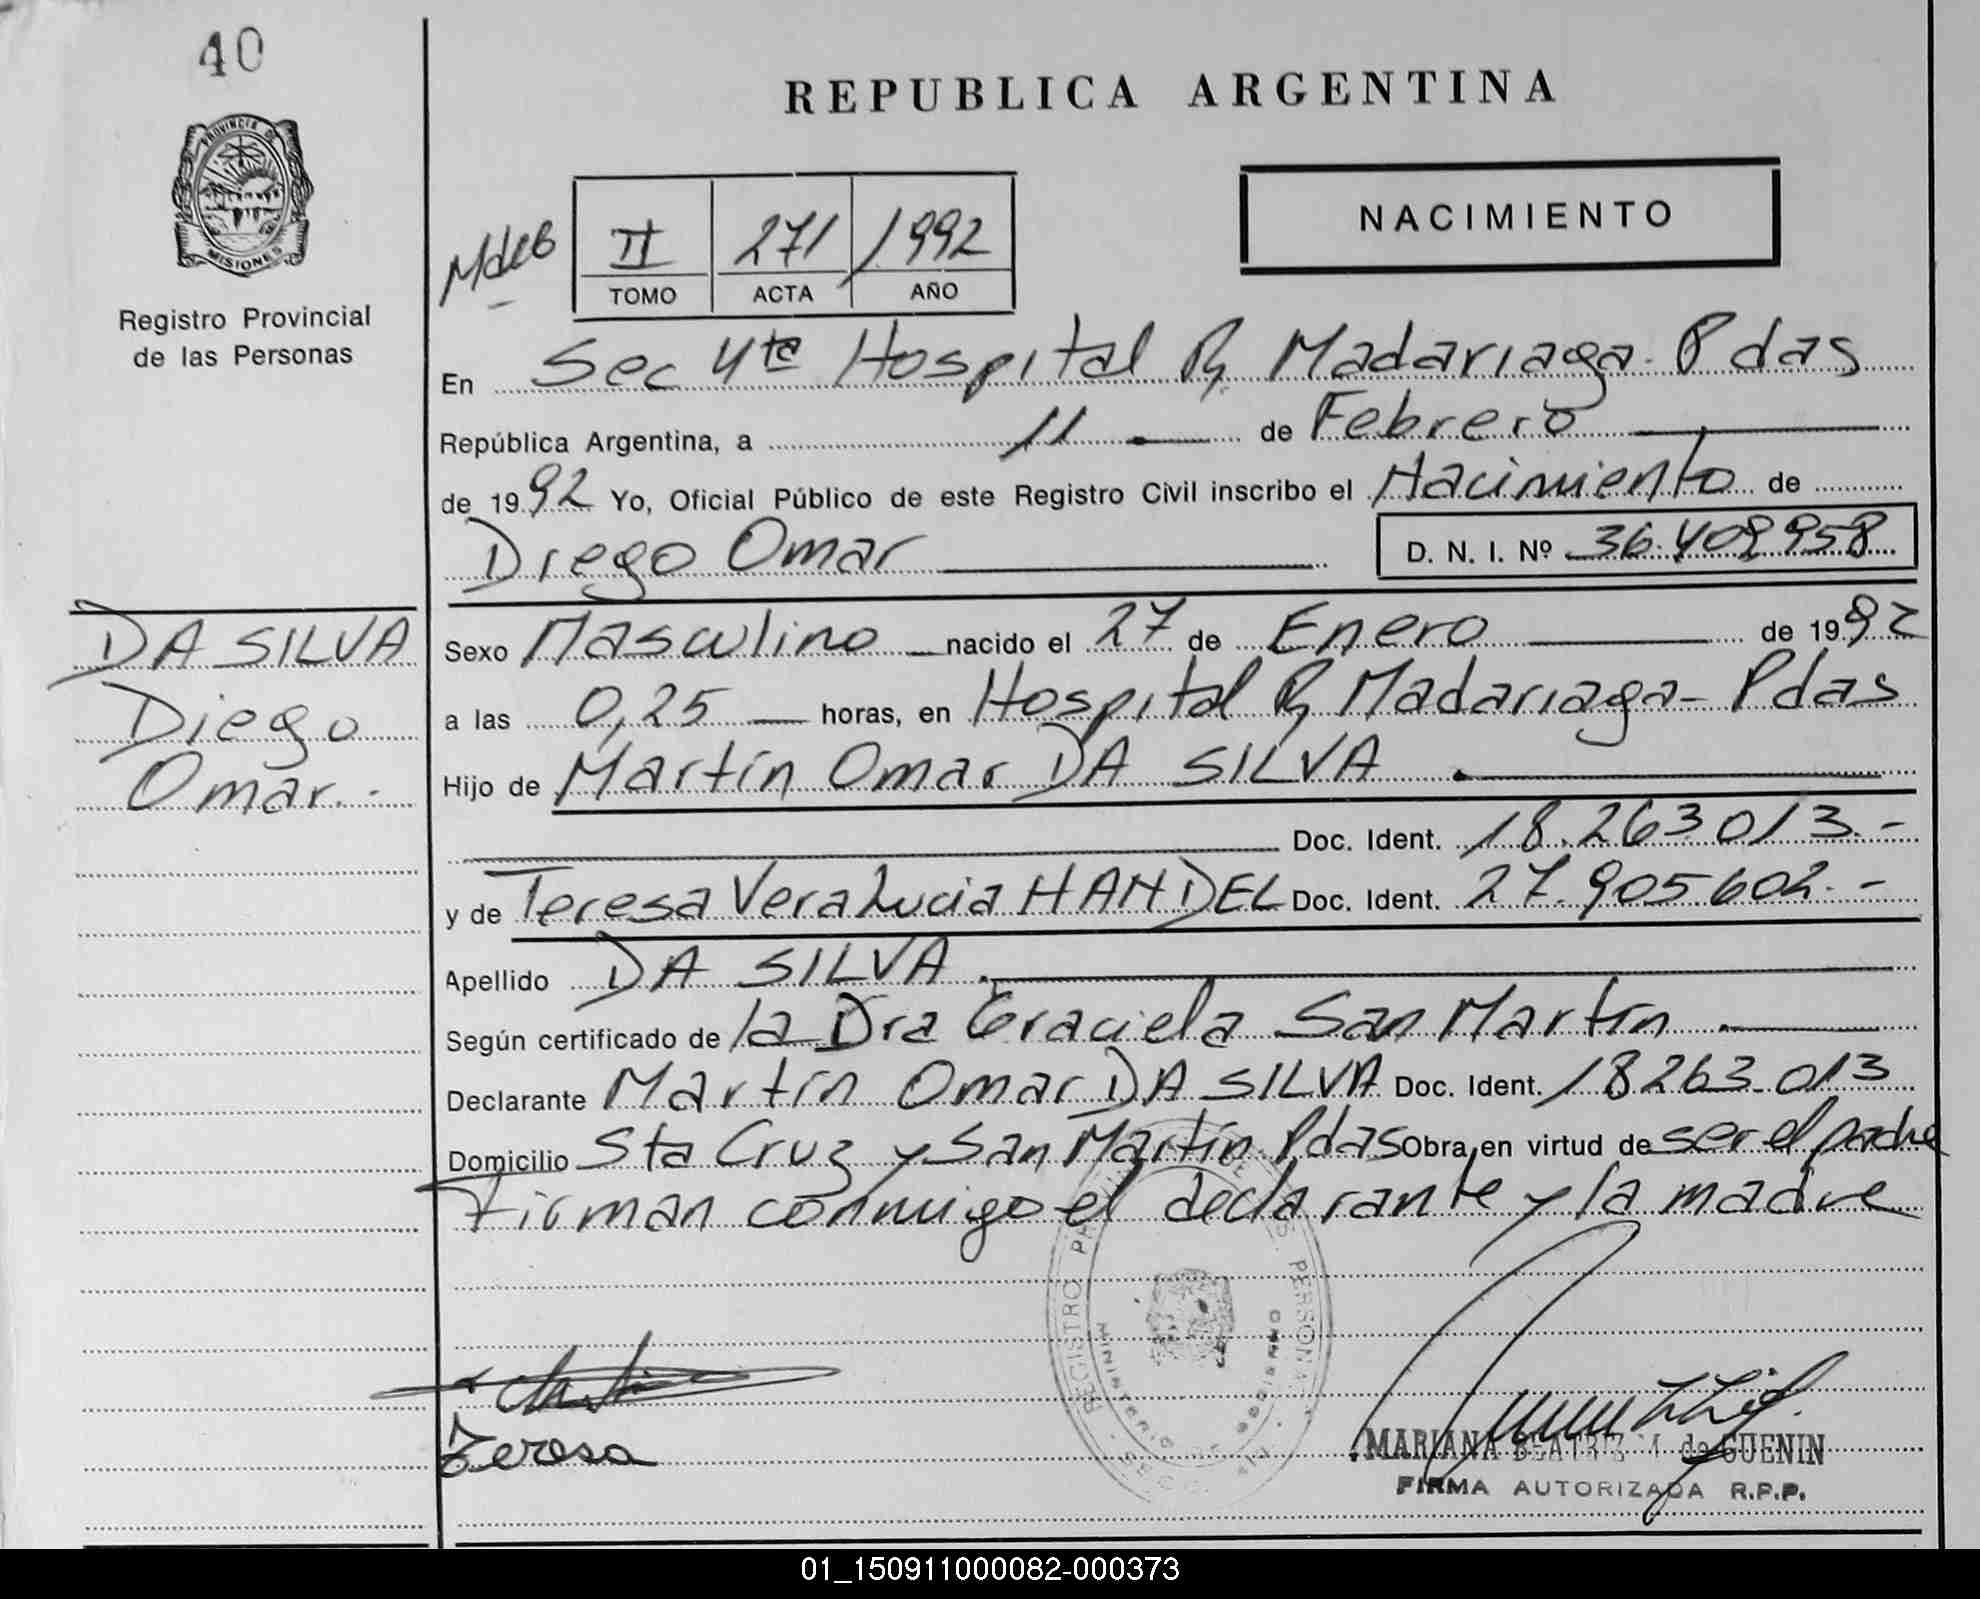 40
PROVINCIA DE
MISIONES
Registro Provincial
de las Personas
REPUBLICA ARGENTINA
NACIMIENTO
II 271 1992
TOMO ACTA AÑO
En Sec 4ta Hospital R Madariaga - Pdas
República Argentina, a 11 de Febrero
de 1992 Yo, Oficial Público de este Registro Civil inscribo el Nacimiento de
Diego Omar D. N. I. Nº 36.408958
DA SILVA
Diego
Omar.-
Sexo Masculino nacido el 27 de Enero de 1992
a las 0,25 horas, en Hospital R Madariaga - Pdas
Hijo de Martín Omar DA SILVA
Doc. Ident. 18.263.013.-
y de Teresa Vera Lucia HANDEL Doc. Ident. 27.905602.-
Apellido DA SILVA.
Según certificado de la Dra Graciela San Martín.
Declarante Martín Omar DA SILVA Doc. Ident. 18263.013
Domicilio Sta Cruz y San Martín Pdas Obra en virtud de ser el padre
Firman conmigo el declarante y la madre
REGISTRO PERSONAS
MINISTERIO DE GOBIERNO
Teresa
MARIANA BEATRIZ M de GUENIN
FIRMA AUTORIZADA R.P.P.
01_150911000082-000373